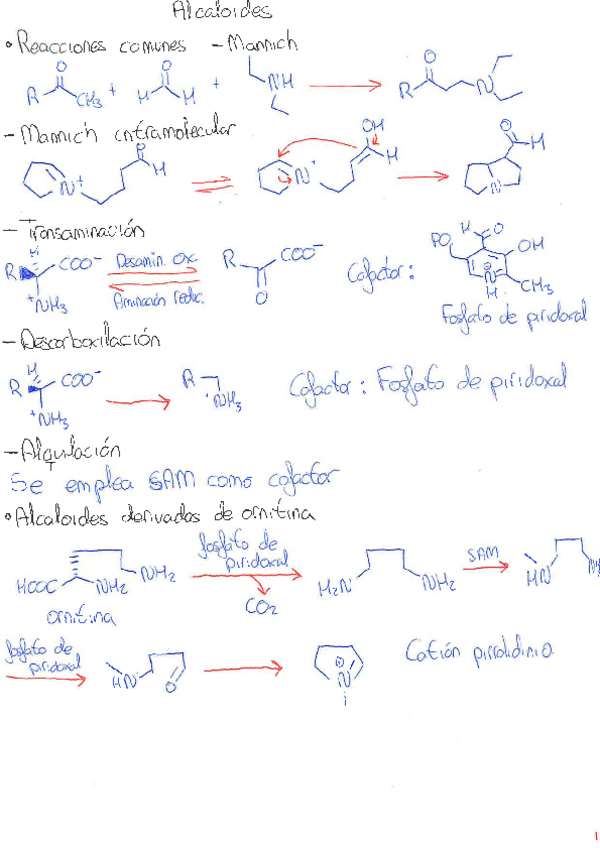 Alcaloides
• Reacciones comunes - Mannich
O O
R CH3 + H H + NH → R O N
- Mannich intramolecular
N+ O H ⇌ N+ OH H → O H N
- Transaminación
R H COO⁻ +NH3 Desamin. Ox. Aminación reduc. R COO⁻ O Cofactor: H O PO OH N H CH3
Fosfato de piridoxal
- Descarboxilación
R H COO⁻ +NH3 → R +NH3 Cofactor: Fosfato de piridoxal
- Alquilación
Se emplea SAM como cofactor
• Alcaloides derivados de ornitina
HOOC NH2 NH2 fosfato de piridoxal CO2 H2N NH2 SAM HN NH
ornitina
fosfato de piridoxal HN O → N Catión pirrolidinio
1